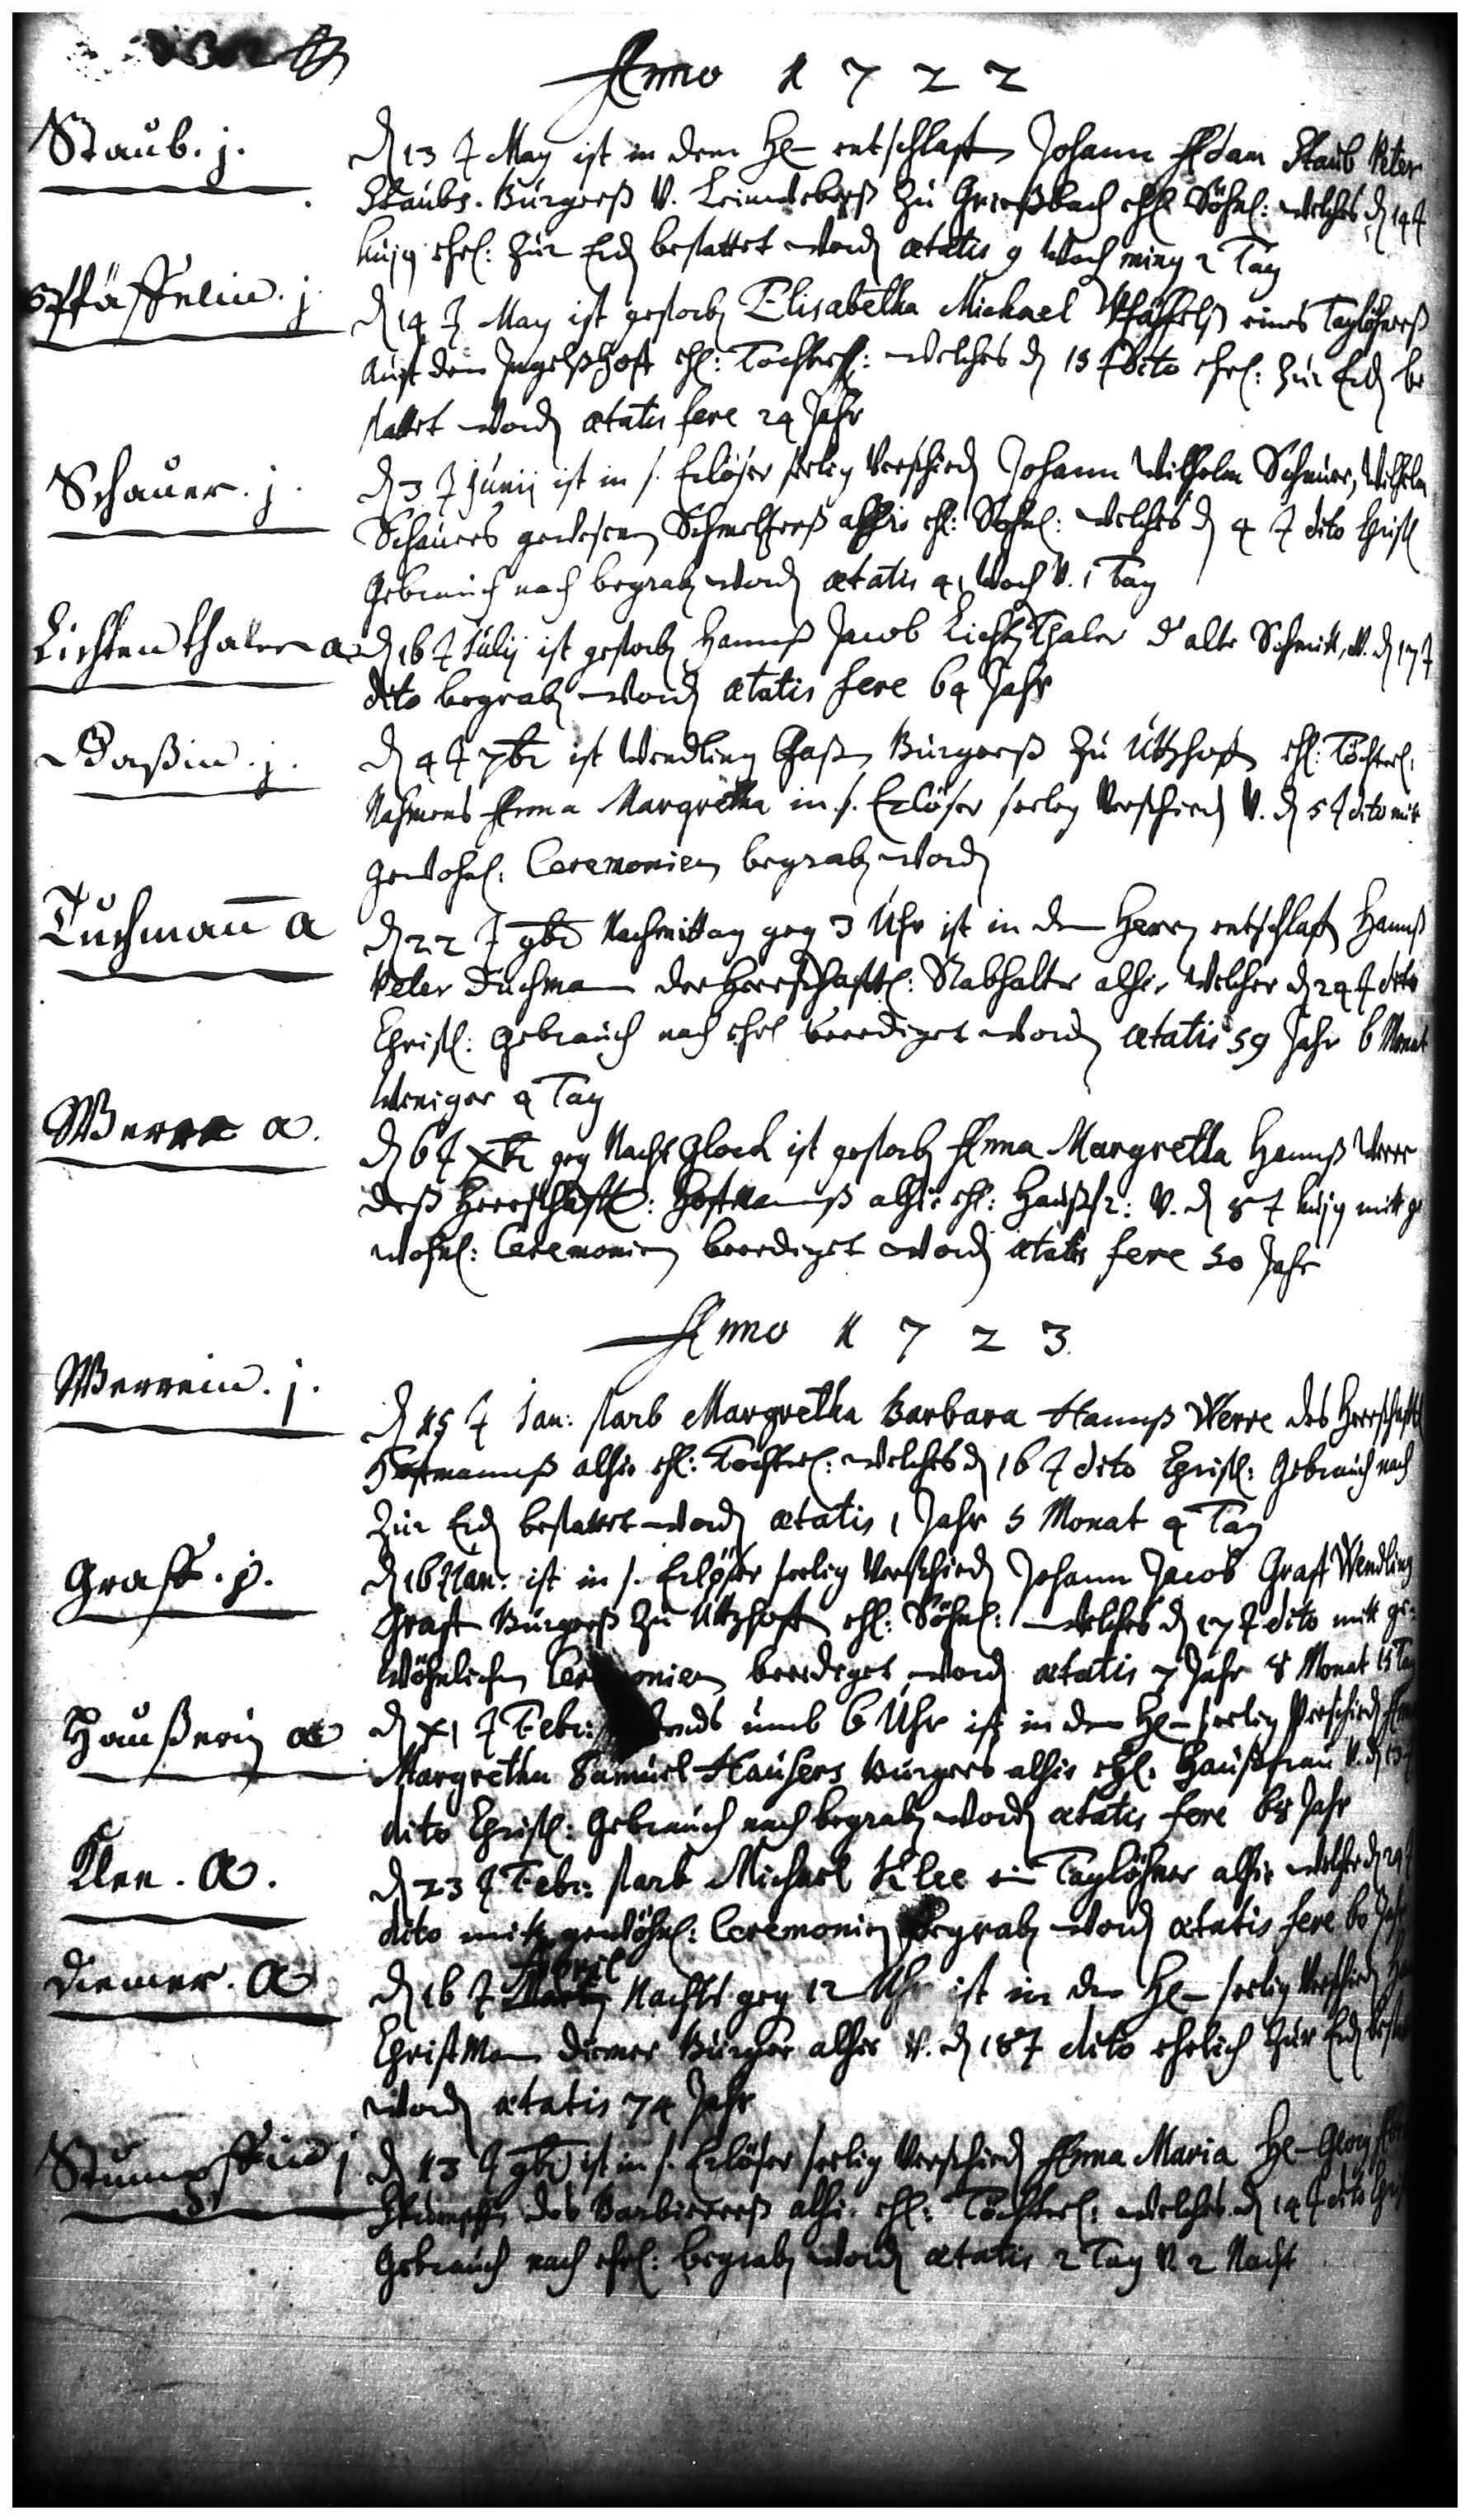 Anno 1722
Staub. j.
d 13 t May ist in dem He entschlaffen Johann Adam Staub Peter
Staubs. Burgerß v. Leinwebers zu Grießbach ehl Söhnl: welches d 14 t
hujg ehrl: zur Erd bestattet word ætatis 9 Woch ming 2 Tag
Pfäffelin. j
d 14 t May ist gestorb Elisabetha Michael Pfäffels eines Taglöhnerß
auff dem Jngelßhoff ehl: Töchterl: welches d 15 t dito ehrl: zur Erd be
stattet word ætatis fere 24 Jahr
Schauer. j.
d 3 t Junij ist in s. Erlöser seelig verschied Johann Wilhelm Schauer, Wilhelm
Schauers gewesenen Schmeltzerß alhie ehl: Söhnl: welches d 4 t dito Christl
Gebrauch nach begrab word ætatis 4 Woch v. 1 Tag
Lichtenthaler a
d 16 t Julij ist gestorb Hannß Jacob Lichtthaler d alte Schmitt, v. d 17 t
dito begrab word ætatis fere 64 Jahr
Baßin. j.
d 4 t 7br ist Wendling Baß Burgerß zu Uttzhoff ehl: Töchterl:
Nahmens Anna Margretha in s. Erlöser seelig verschied v. d 5 t dito mitt
gewohnl: Ceremonien begrab word
Tuchmañ a
d 22 t 9br Nachmittag geg 3 Uhr ist in dem Herrn entschlaff Hannß
Peter Duchmann der Herrschafftl: Stabhalter alhie, welcher d 24 t dito
Christl: Gebrauch nach ehrl beerdiget word ætatis 59 Jahr 6 Monat
weniger 4 Tag
Werre a.
d 6 t xbr geg Nacht Glock ist gestorb Anna Margretha Hannß Werre
deß Herrschafftl: Hoffmannß alhie ehl: Haußfr: v. d 8 t hujg mitt ge
wohnl: Ceremonien beerdiget word ætatis fere 50 Jahr
Anno 1723
Werrein. j.
d 15 t Jan: starb Margretha Barbara Hannß Werre des Herrschafftl
Hoffmannß alhie ehl: Töchterl: welches d 16 t dito Christl: Gebrauch nach
zur Erd bestattet word ætatis 1 Jahr 5 Monat 4 Tag
Graff. j.
d 16 t Jan: ist in s. Erlöser seelig verschied Johann Jacob Graff Wendling
Graff Burgerß zu Uttzhoff ehl: Söhnl: welches d 17 t dito mitt ge
wöhnlichen Ceremonien beerdiget word ætatis 7 Jahr 8 Monat 15 Tag
Haußerin a
d x1 t Febr: Abends umb 6 Uhr ist in dem He seelig verschied
Margretha Samuel Hausers Burgers alhie ehl: Haußfrau v. d 13 t
dito Christl: Gebrauch nach begrab word ætatis fere 68 Jahr
Klee. a.
d 23 t Febr: starb Michael Klee ein Taglöhner alhie welcher d
dito mitt gewöhnl: Ceremonien begrab word ætatis fere 60 Jahr
Diemer. a
April
d 16 t Nachts geg 12 Uhr ist in dem He seelig verschied
Christmann Diemer Burger alhie v. d 18 t dito ehrlich zur Erd bestatt
word ætatis 74 Jahr
Stumpffin j
d 13 t 9br ist in s. Erlöser seelig verschied Anna Maria He Georg
Stumpffen des Barbiererß alhie ehl: Töchterl: welches d 14 t dito Christ
Gebrauch nach ehrl: begrab word ætatis 2 Tag v. 2 Nacht